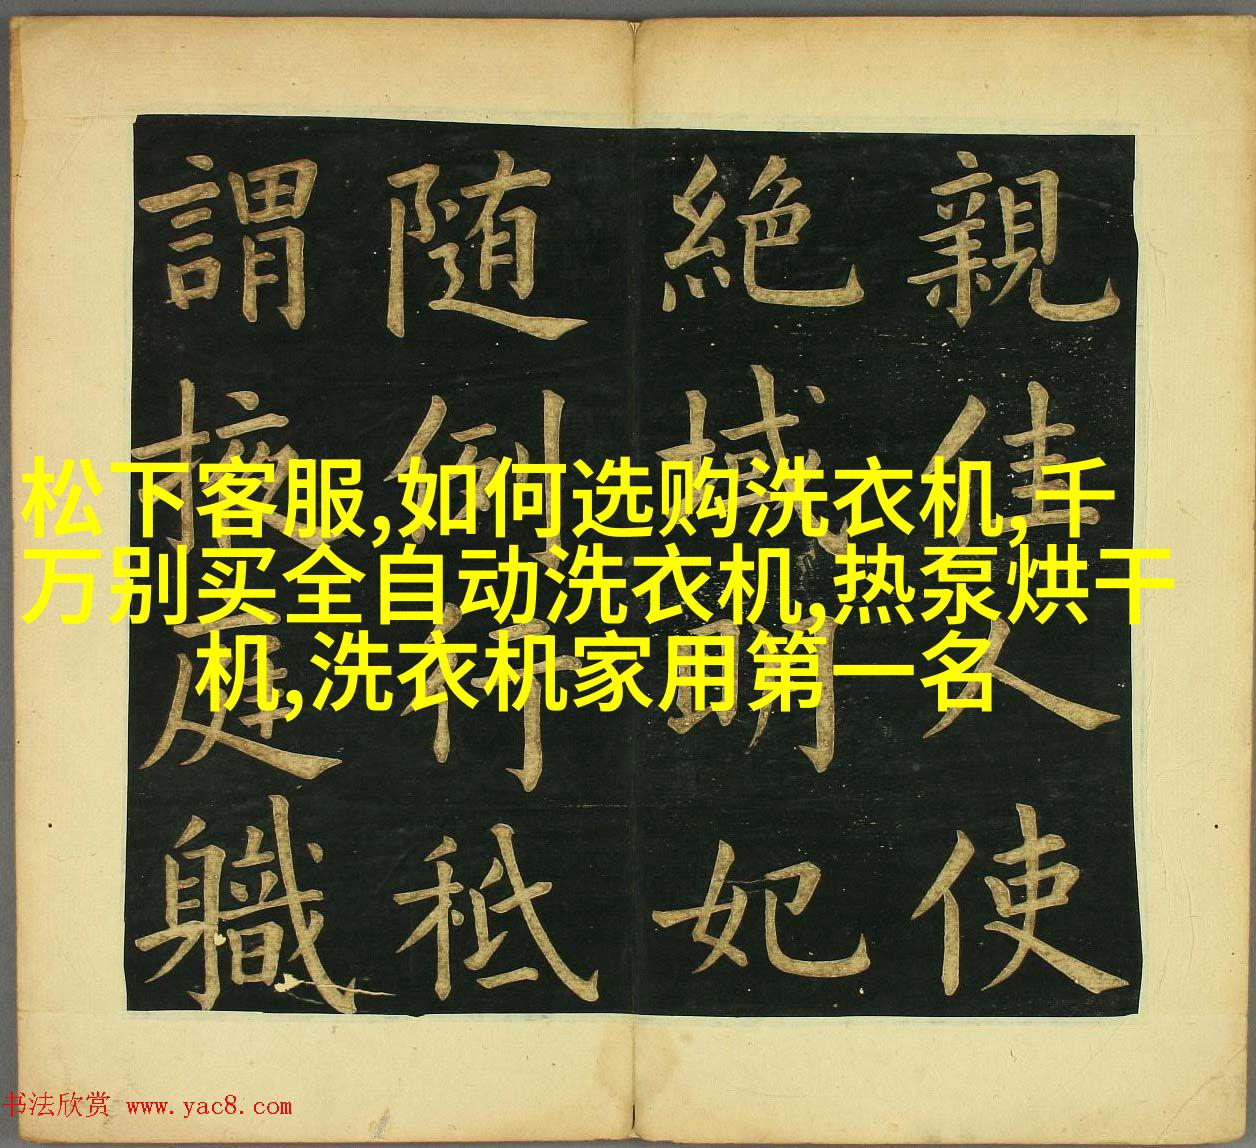 親佳人使
絶域明妃
随例行秪
謂掖庭職
松下客服,如何选购洗衣机,千
万别买全自动洗衣机,热泵烘干
机,洗衣机家用第一名
书法欣赏 www.yac8.com